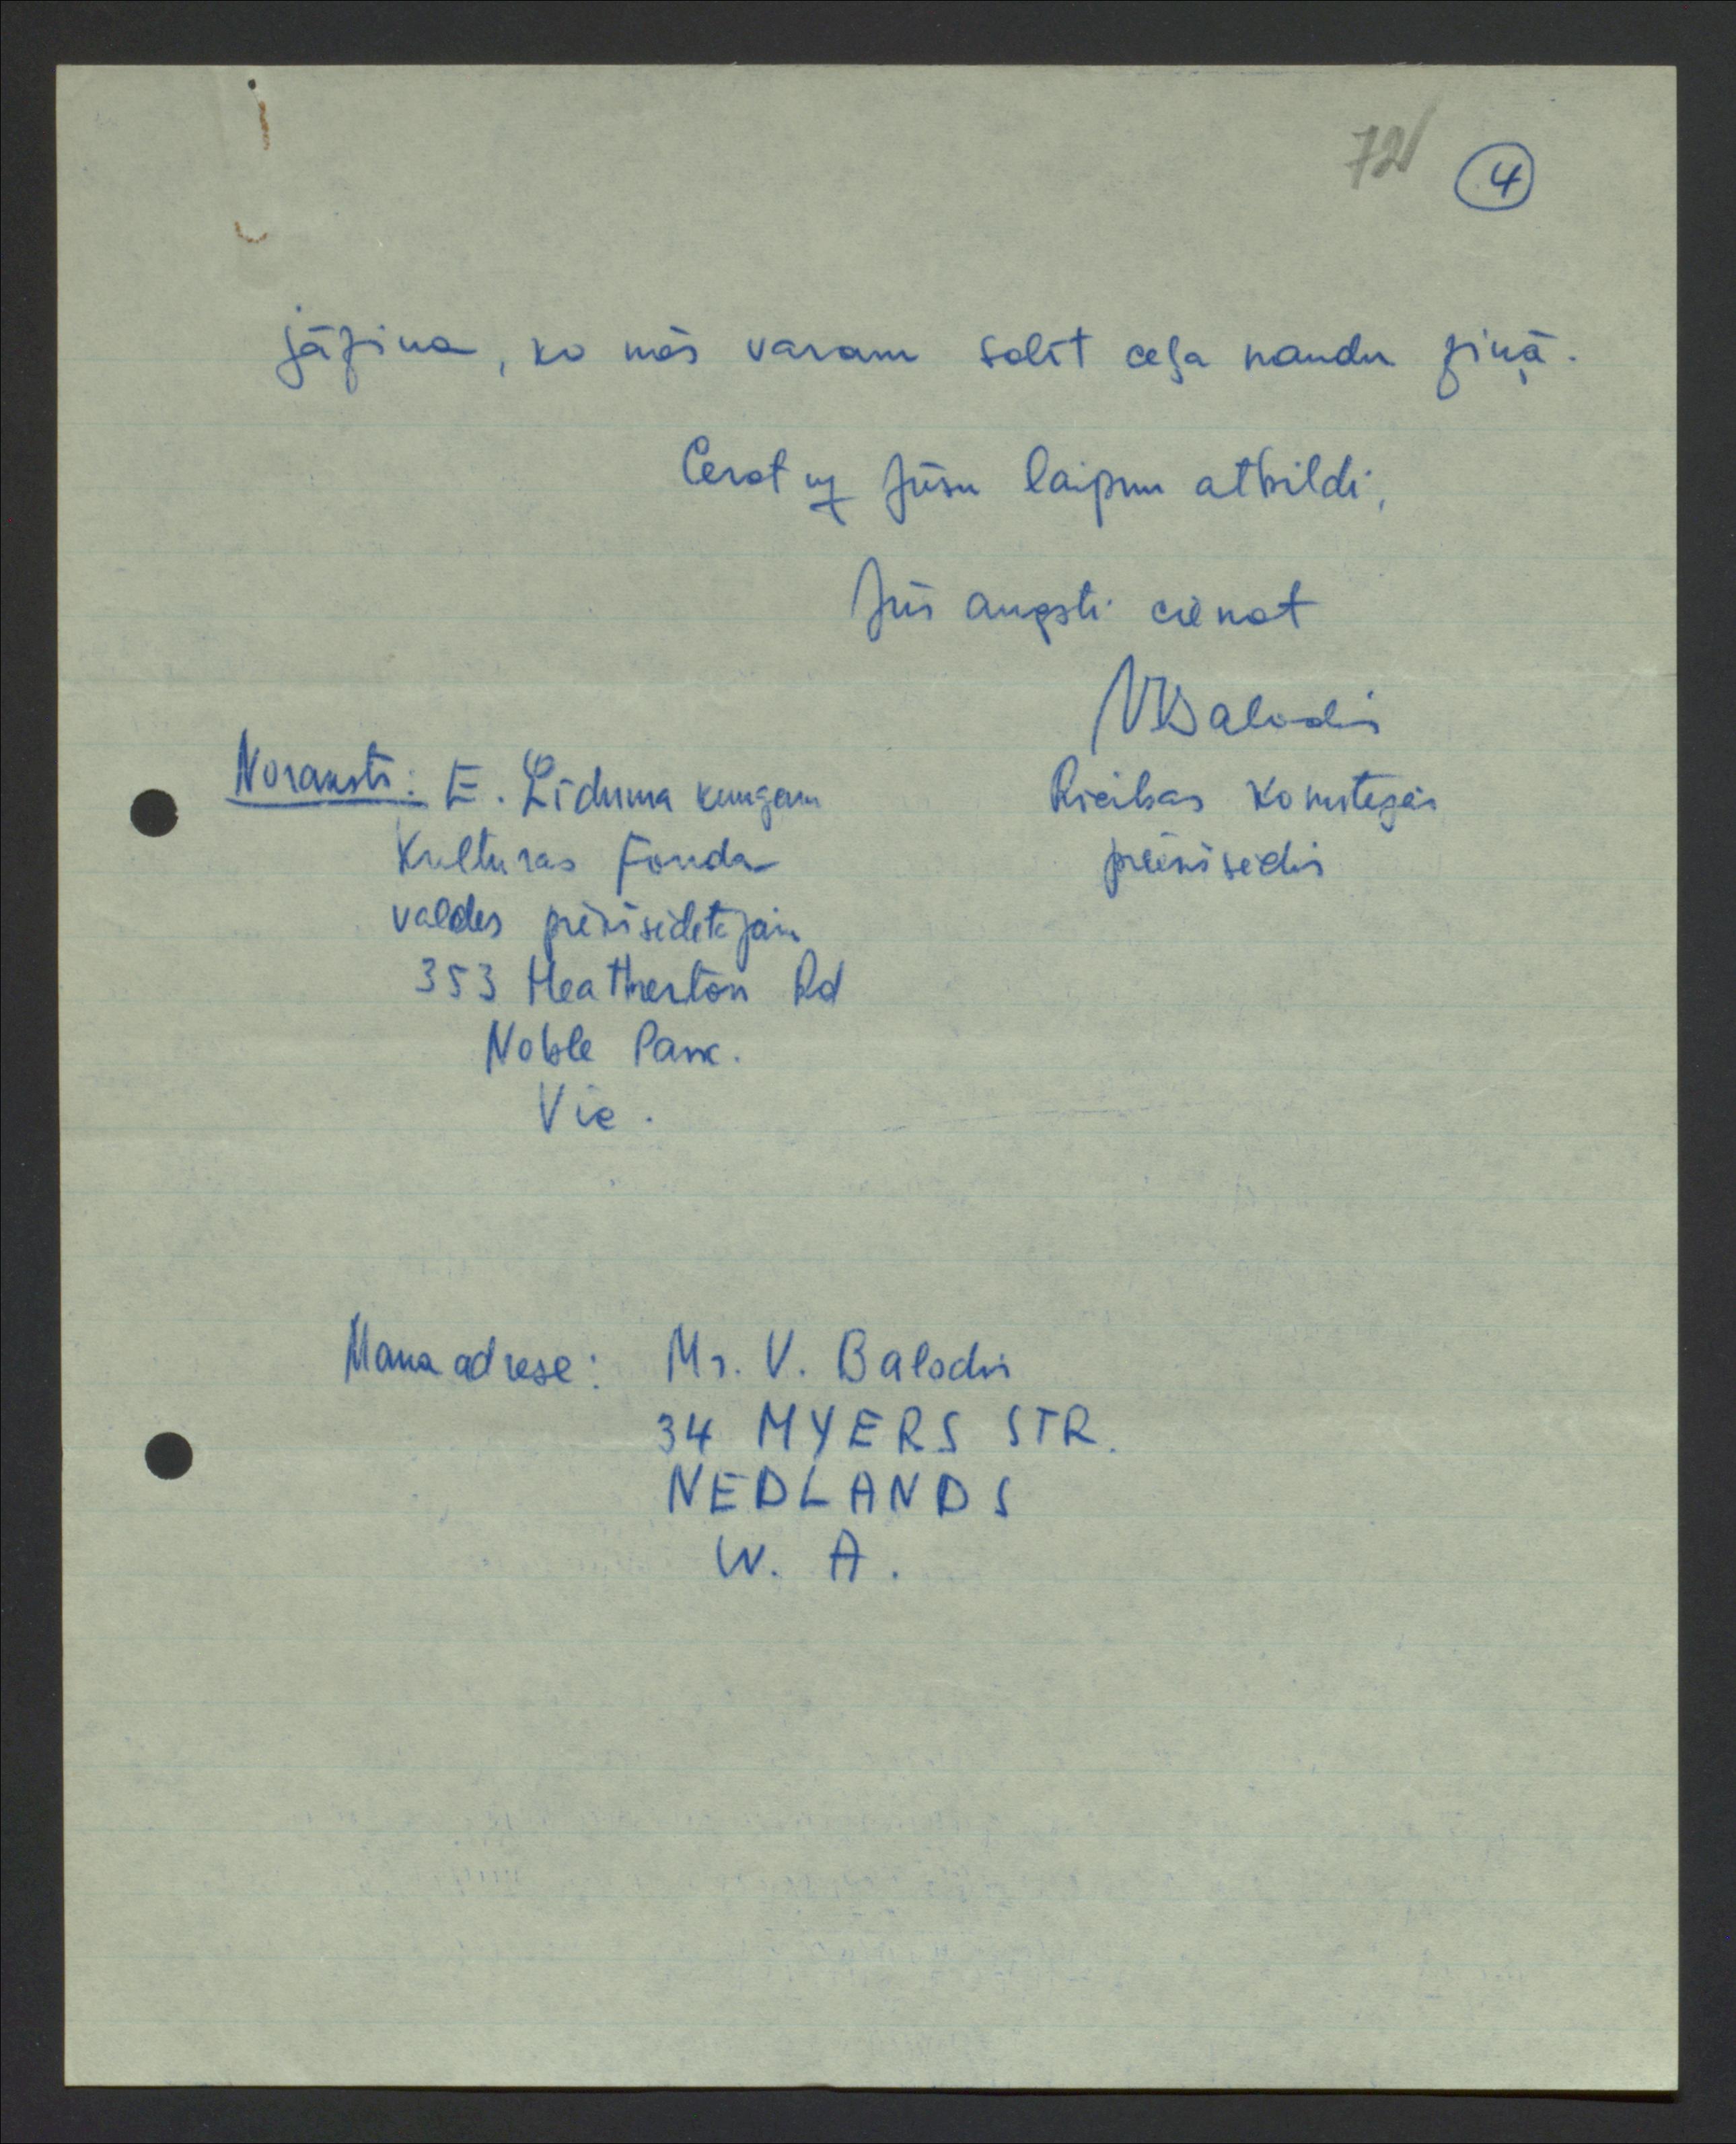 72
4
jāzina, ko mēs varam solīt ceļa naudu ziņā.
Cerot uz Jūsu laipnu atbildi,
Jūs augsti cienot
VBalodis
Rīcības Komitejas
priekšsēdis
Noraksts: E. Līduma kungam
Kultūras Fonda
valdes priekšsēdētājam
353 Heatherton Rd
Noble Park.
Vic.
Mana adrese: Mr. V. Balodis
34 MYERS STR.
NEDLANDS
W. A.